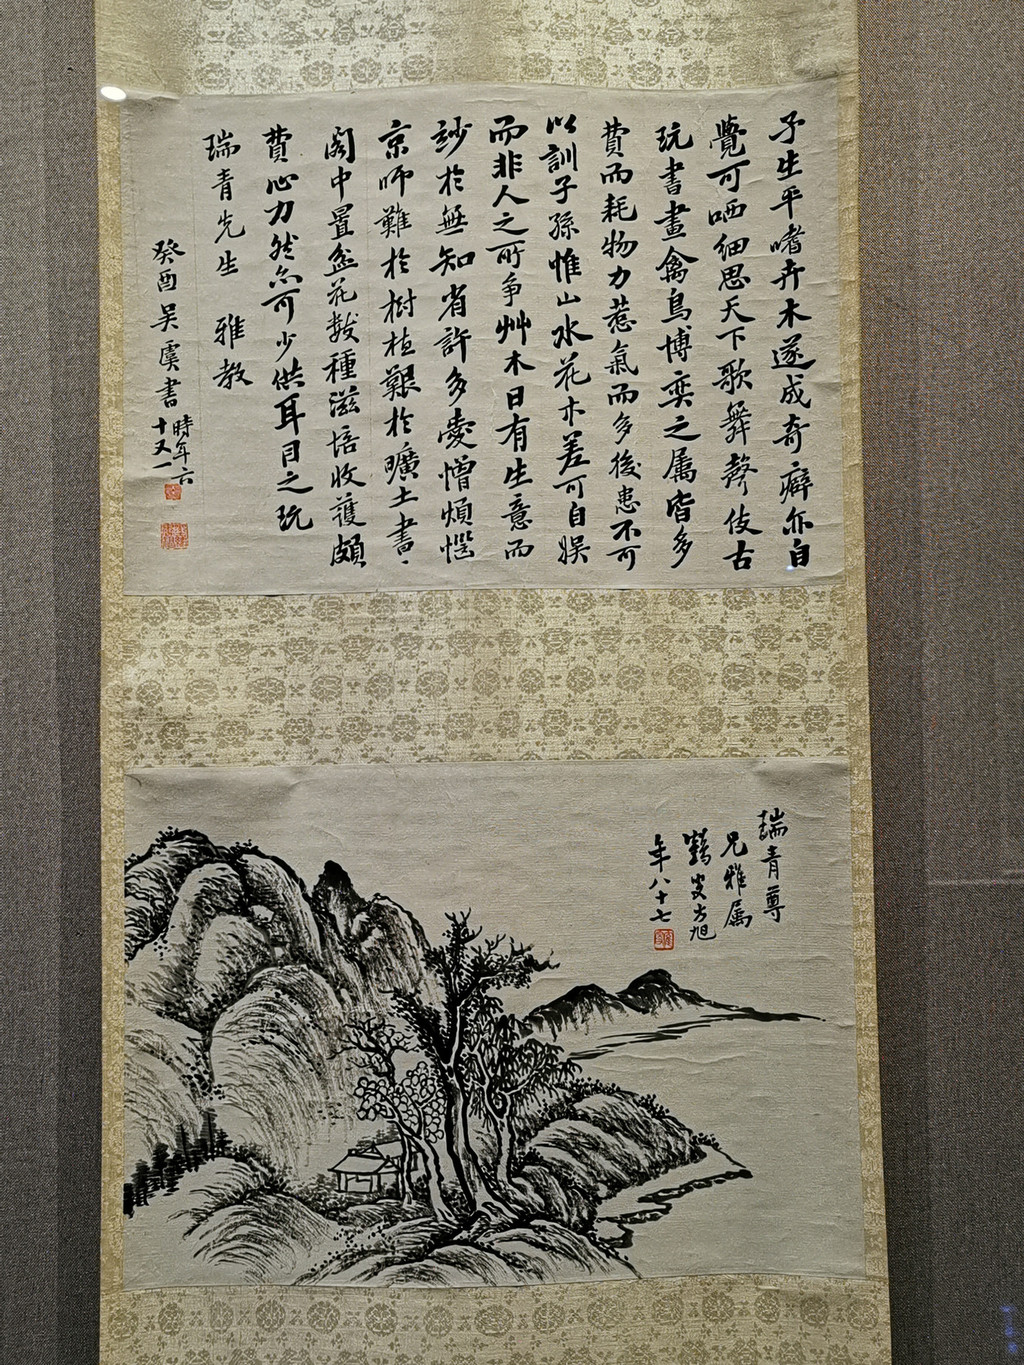 予生平嗜卉木遂成奇癖亦自
覺可哂細思天下歌舞聲伎古
玩書畫禽鳥博奕之属皆多
費而耗物力惹氣而多後患不可
以訓子孫惟山水花木差可自娱
而非人之所争艸木日有生意而
妙於無知省許多愛憎煩惱
京师難於樹植艱於曠土書
阁中置盆花数種滋培收護頗
費心力然亦可少供耳目之玩
瑞青先生 雅教
癸酉吴虞書時年六
十又一
瑞青尊
兄雅属
鶴叟方旭
年八十七